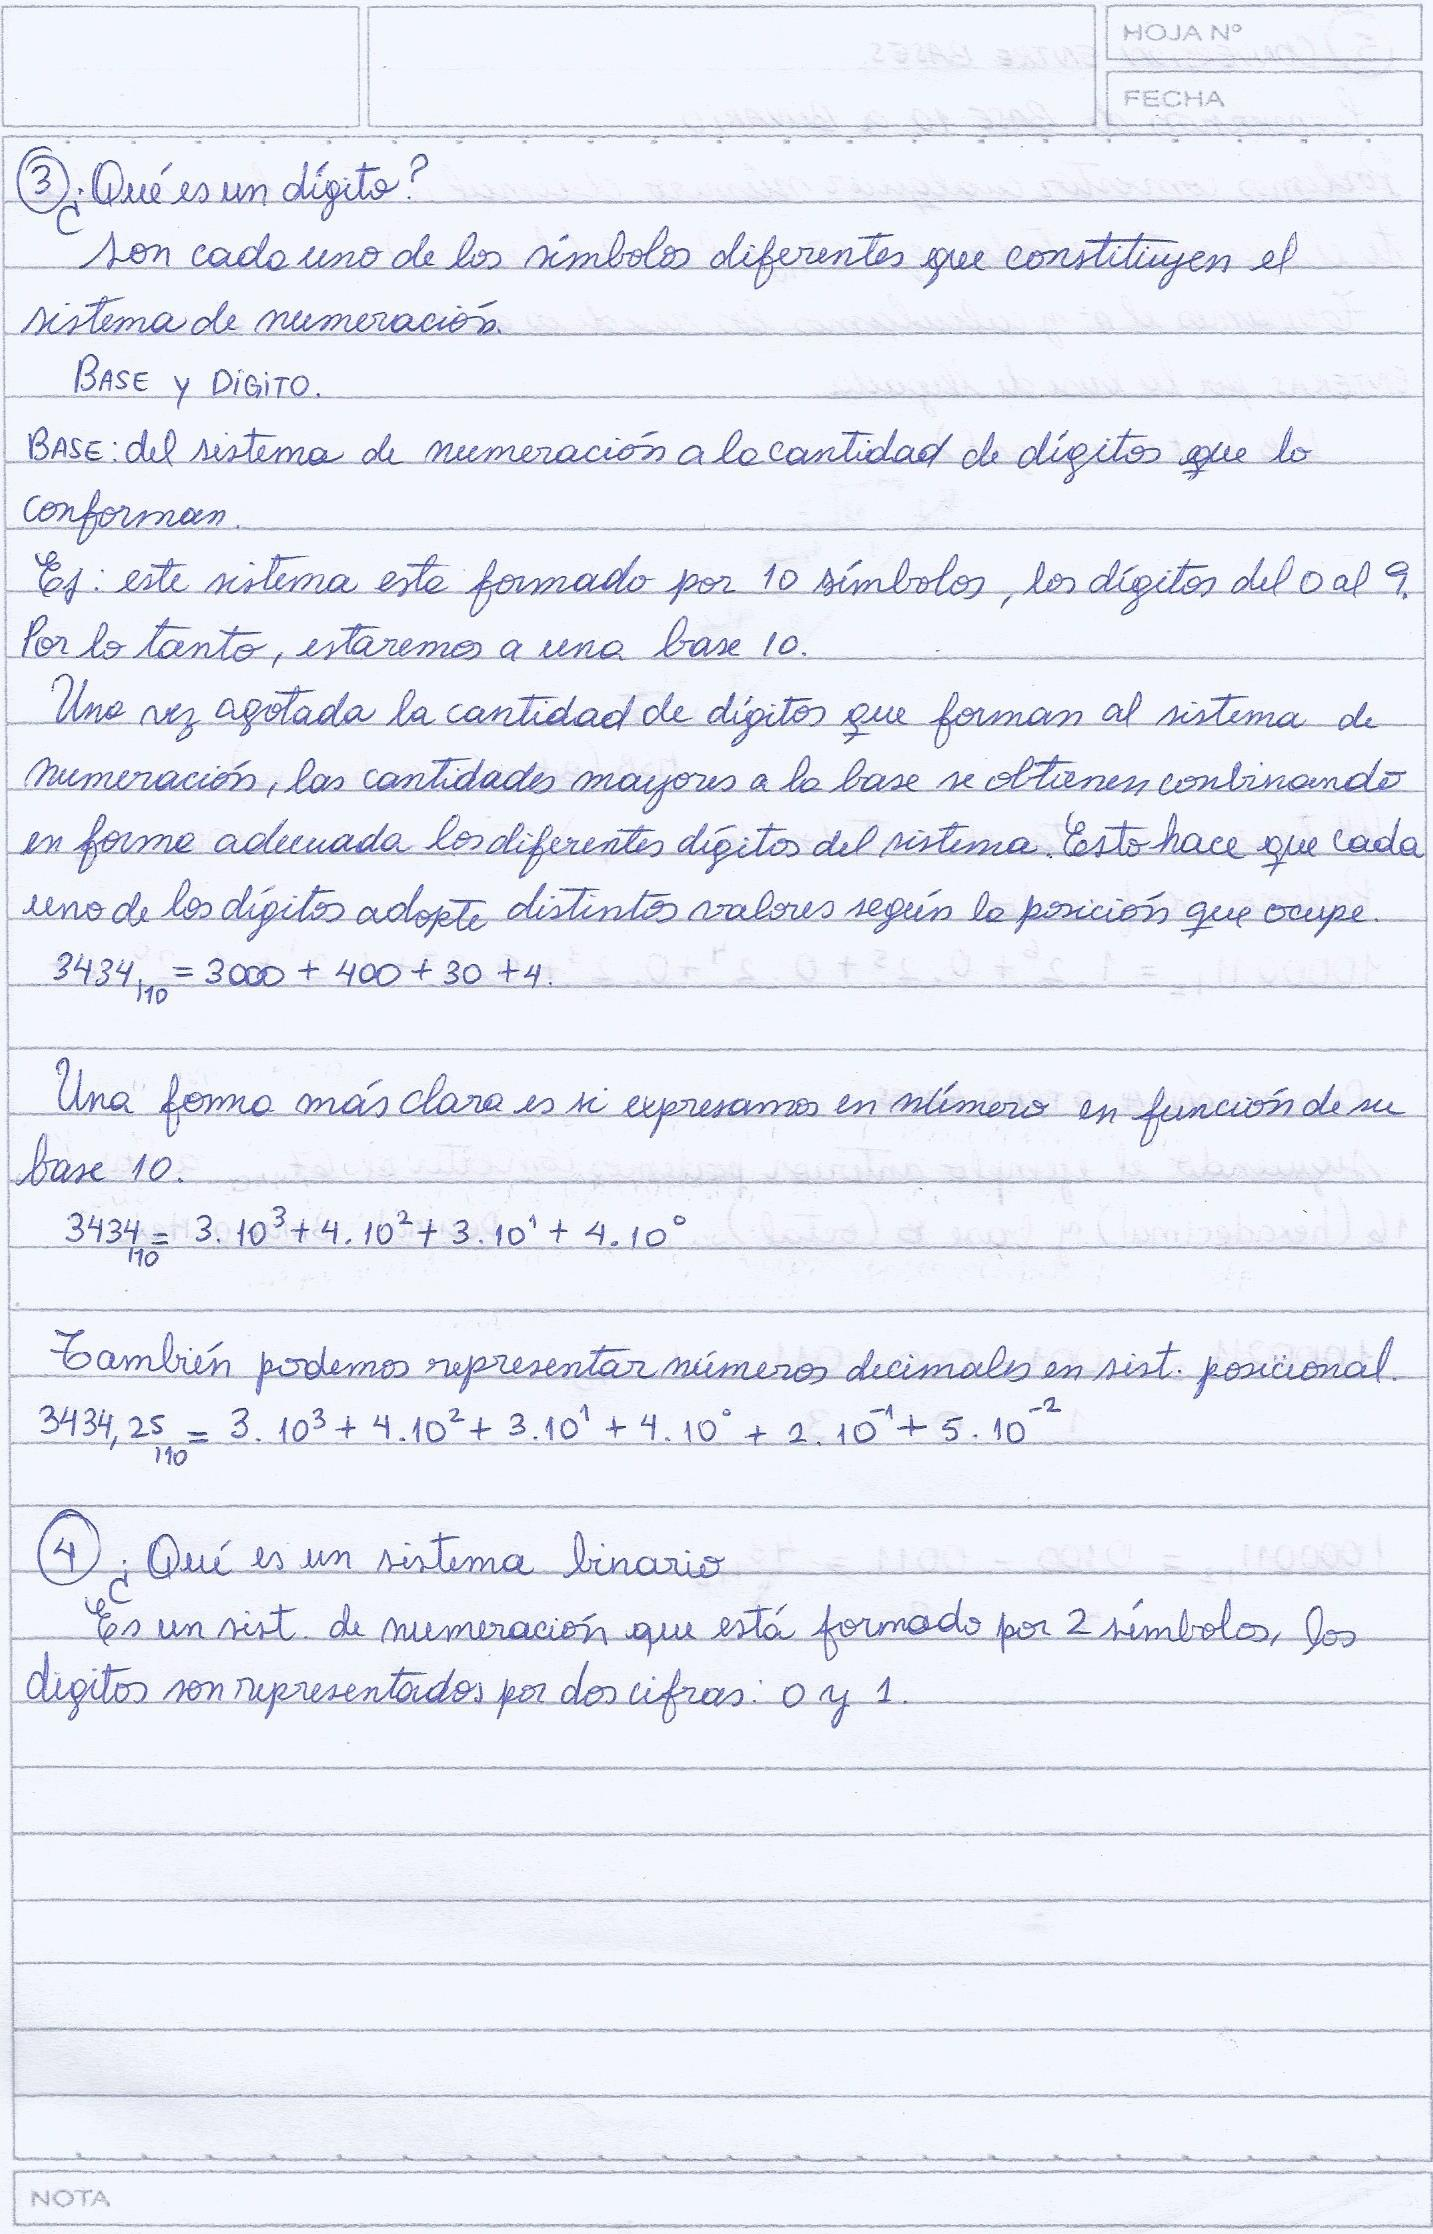 HOJA Nº
FECHA
3 ¿Qué es un dígito?
Son cada uno de los símbolos diferentes que constituyen el
sistema de numeración.
BASE Y DIGITO.
BASE: del sistema de numeración a la cantidad de dígitos que lo
conforman.
Ej: este sistema esta formado por 10 símbolos, los dígitos del 0 al 9.
Por lo tanto, estaremos a una base 10.
Una vez agotada la cantidad de dígitos que forman al sistema de
numeración, las cantidades mayores a la base se obtienen conbinando
en forma adecuada los diferentes dígitos del sistema. Esto hace que cada
uno de los dígitos adopte distintos valores según la posición que ocupe.
3434|10 = 3000 + 400 + 30 + 4.
Una forma más clara es si expresamos en número en función de su
base 10.
3434|10 = 3. 10³ + 4. 10² + 3. 10¹ + 4. 10⁰
También podemos representar números decimales en sist. posicional.
3434,25|10 = 3. 10³ + 4. 10² + 3. 10¹ + 4. 10⁰ + 2. 10⁻¹ + 5. 10⁻²
4 ¿Qué es un sistema binario
Es un sist. de numeración que está formado por 2 símbolos, los
digitos son representados por dos cifras: 0 y 1.
NOTA